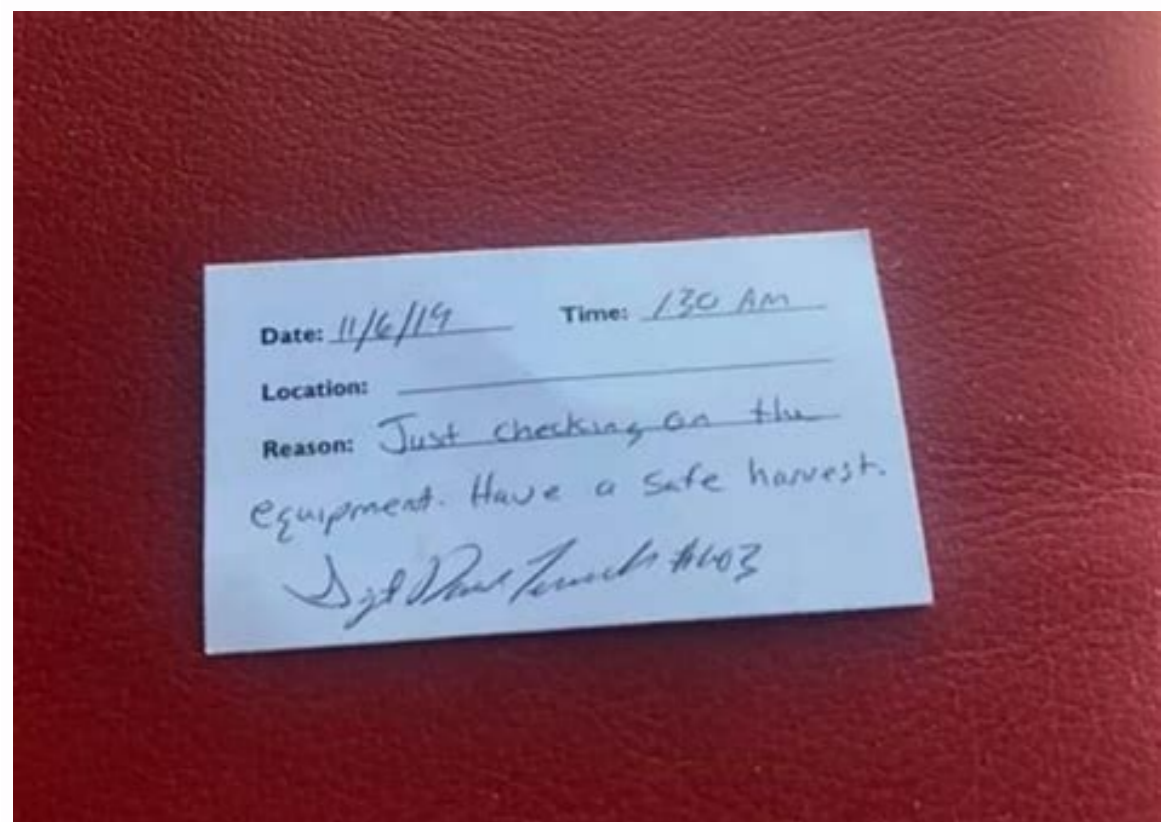 Date: 11/6/19 Time: 130 AM
Location:
Reason: Just checking on the
equipment. Have a safe harvest.
Sgt #603